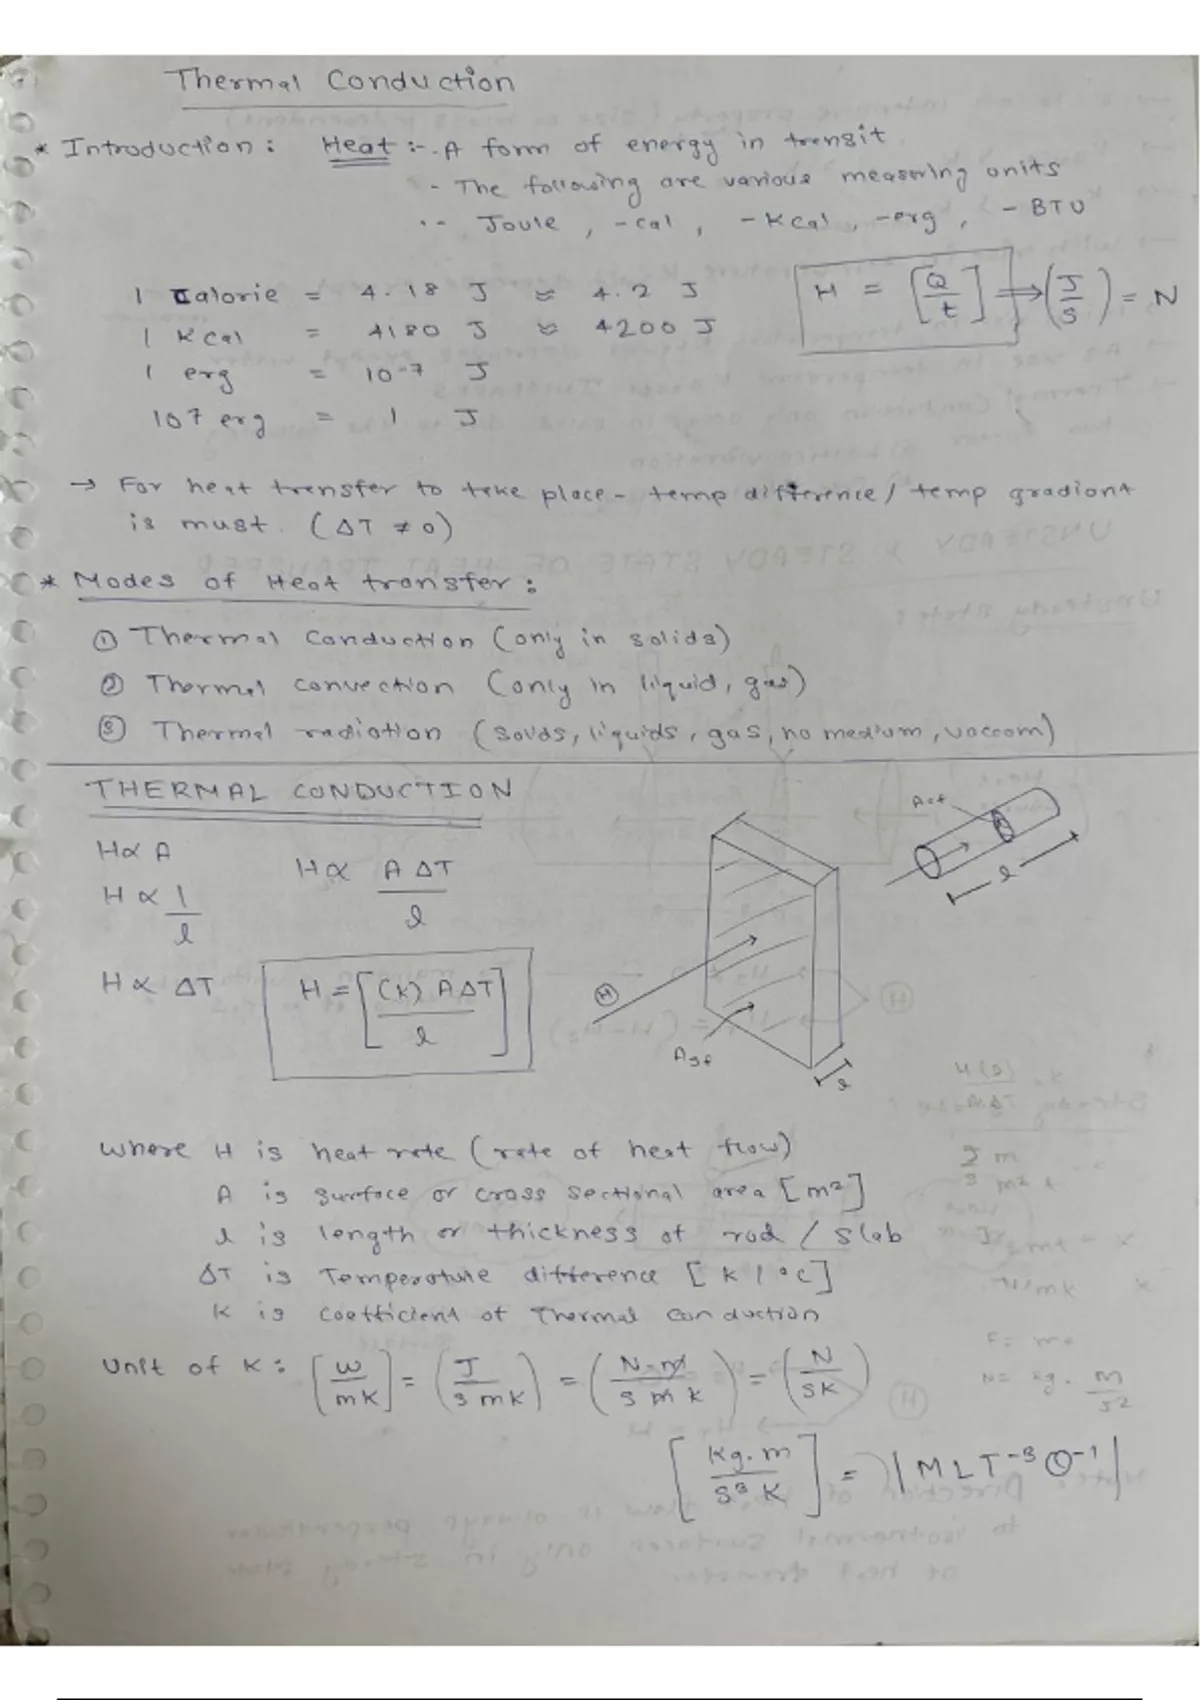 Thermal Conduction
* Introduction : Heat :- - A form of energy in transit
- The following are various measuring units
- Joule , - cal , - Kcal , - erg , - BTU
1 Calorie = 4.18 J ≈ 4.2 J
H = [Q/t] ⇒ (J/s) = N
1 Kcal = 4180 J ≈ 4200 J
1 erg = 10-7 J
107 erg = 1 J
→ For heat transfer to take place - temp difference / temp gradient
is must. (ΔT ≠ 0)
* Modes of Heat transfer :
① Thermal Conduction (only in solids)
② Thermal convection (only in liquid, gas)
③ Thermal radiation (solids, liquids, gas, no medium, vaccom)
THERMAL CONDUCTION
H ∝ A
H ∝ 1/l
H ∝ A ΔT/l
H ∝ ΔT
H = [(K) A ΔT/l]
H
l
l
where H is heat rate (rate of heat flow)
A is surface or cross sectional area [m2]
l is length or thickness of rod / slab
ΔT is Temperature difference [K / °C]
K is coefficient of Thermal conduction
Unit of K : [w/mK] = (J/s mK) = (N-m/s m K) = (N/sK)
[Kg.m/s3 K] = |MLT-3 Θ-1|